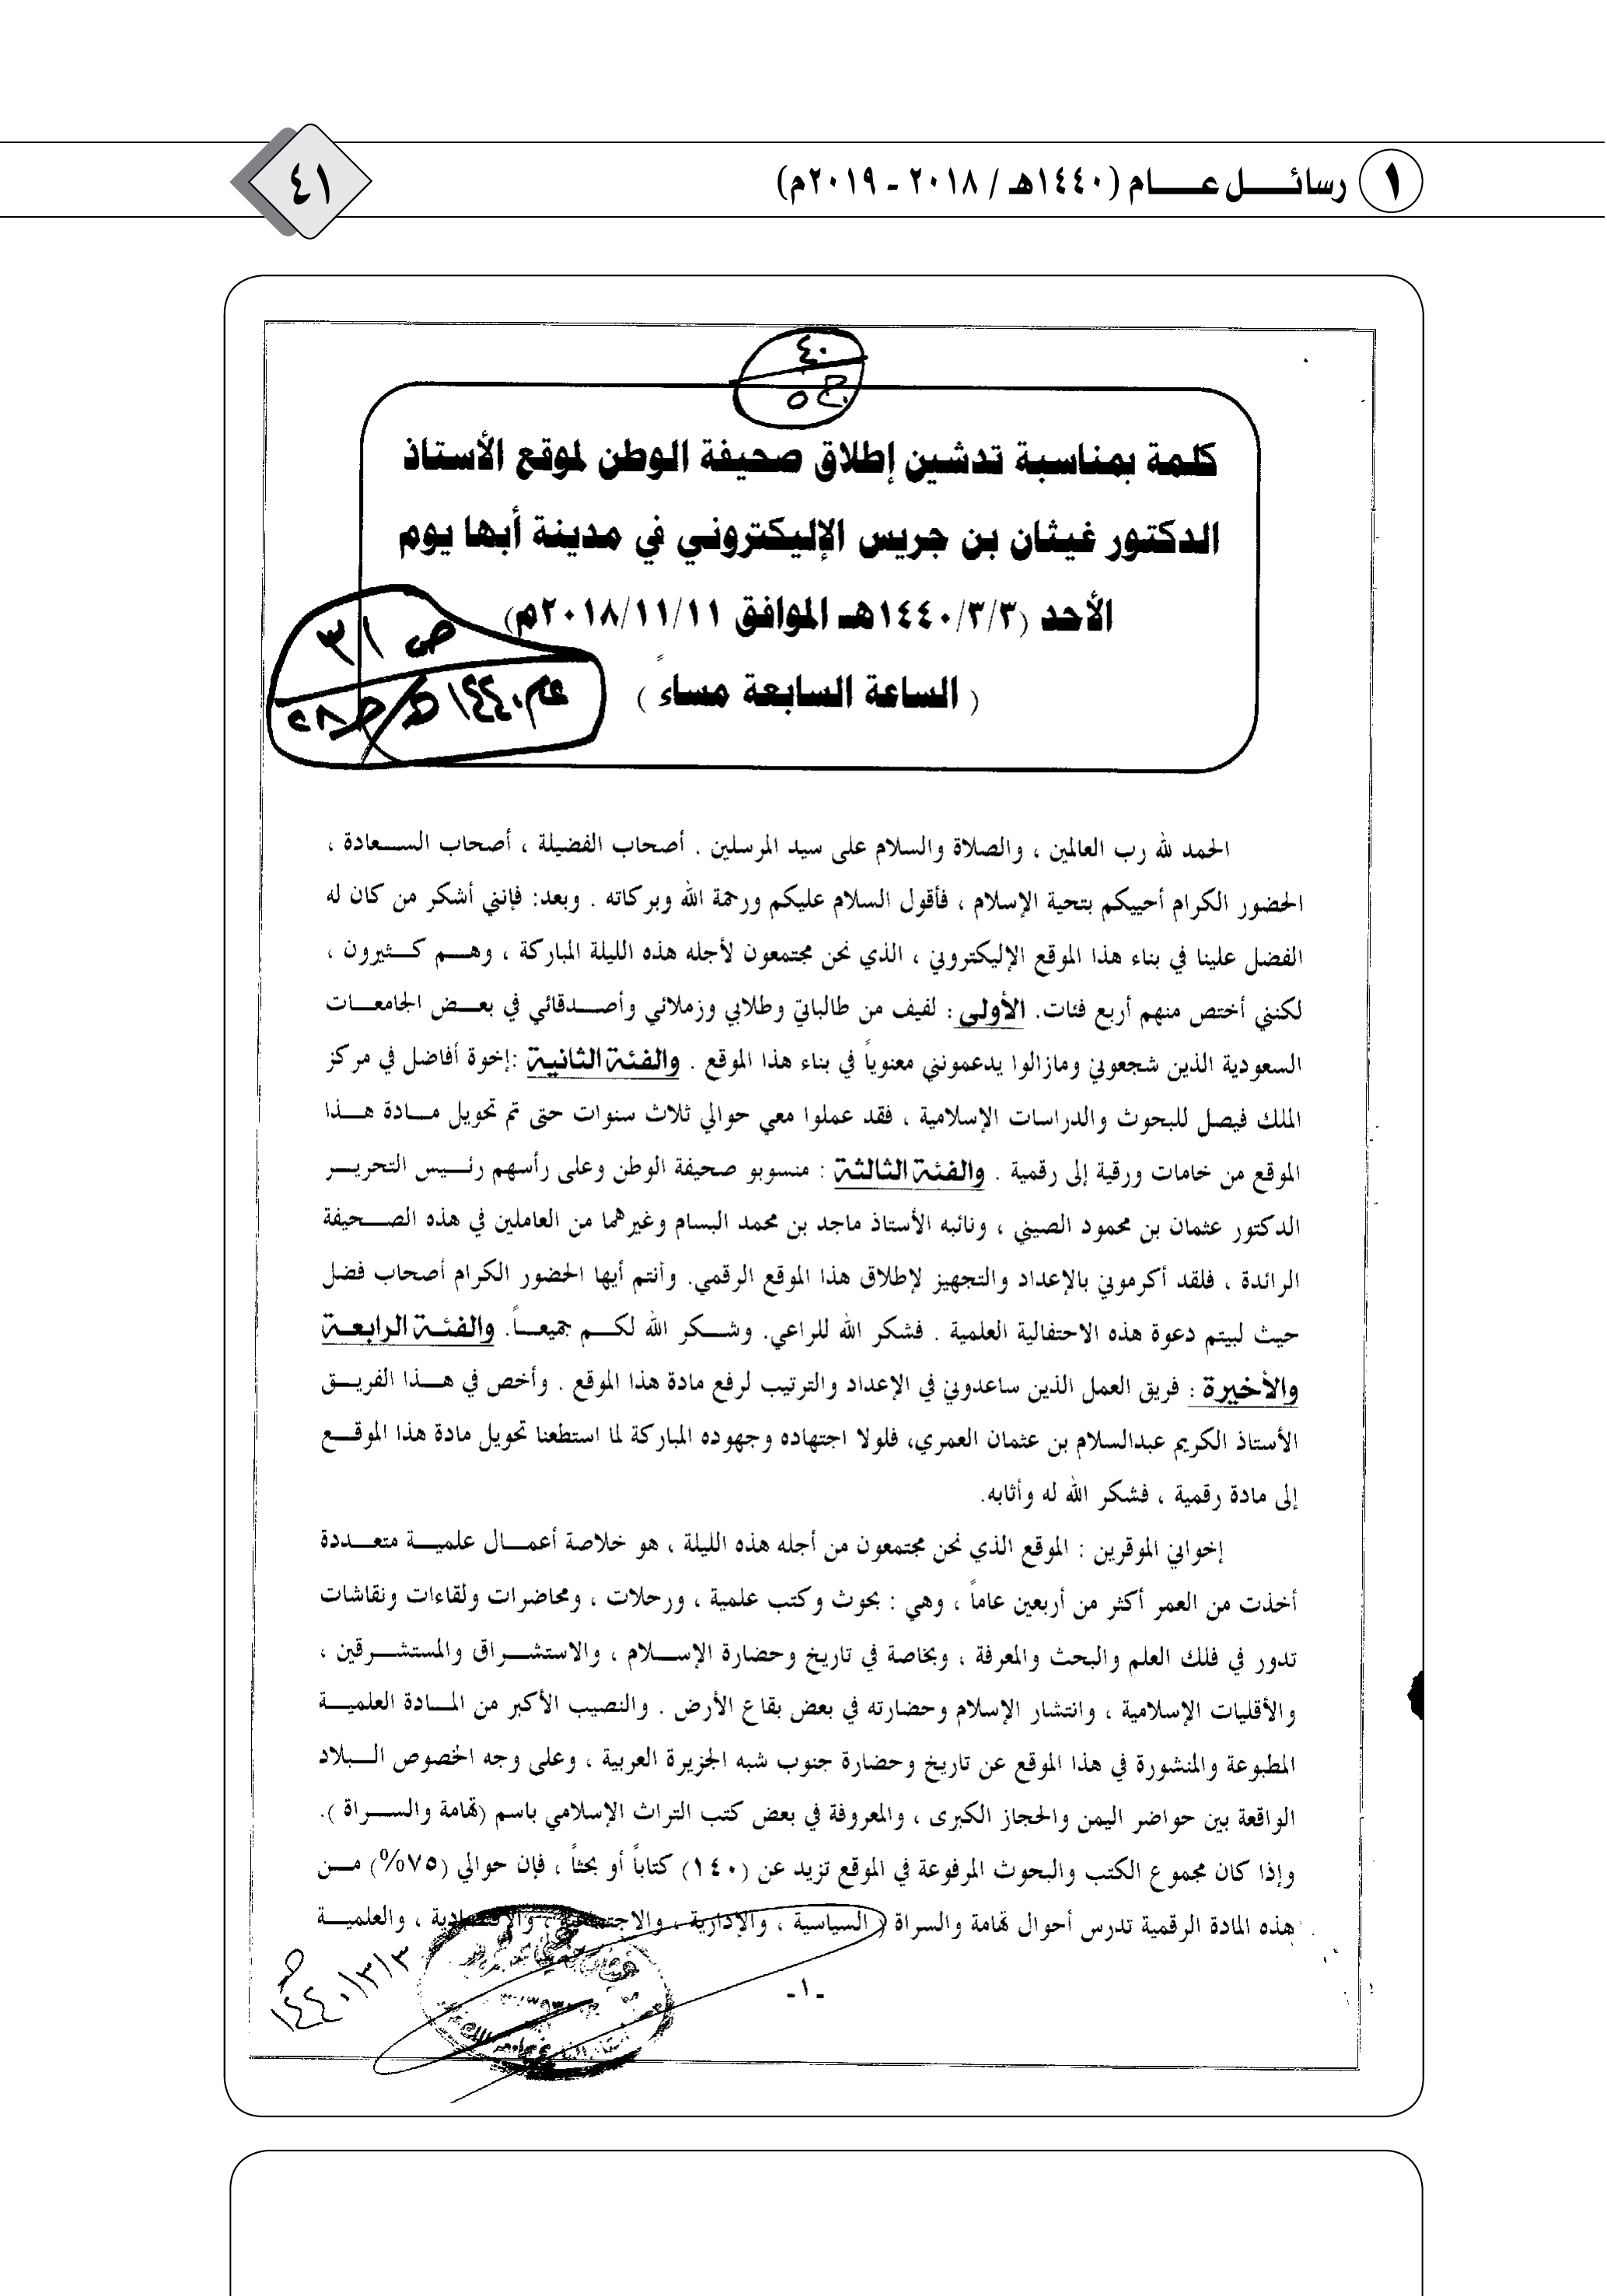 ١ رسائل عام (١٤٤٠هـ / ٢٠١٨ - ٢٠١٩م)
٤١
٤٠
ج ٥
كلمة بمناسبة تدشين إطلاق صحيفة الوطن لموقع الأستاذ
الدكتور غيثان بن جريس الإليكتروني في مدينة أبها يوم
الأحد (١٤٤٠/٣/٣هـ الموافق ٢٠١٨/١١/١١م)
( الساعة السابعة مساءً )
ص ٣١
الحمد لله رب العالمين ، والصلاة والسلام على سيد المرسلين . أصحاب الفضيلة ، أصحاب السعادة ،
الحضور الكرام أحييكم بتحية الإسلام ، فأقول السلام عليكم ورحمة الله وبركاته . وبعد: فإنني أشكر من كان له
الفضل علينا في بناء هذا الموقع الإليكتروني ، الذي نحن مجتمعون لأجله هذه الليلة المباركة ، وهم كثيرون ،
لكنني أختص منهم أربع فئات. الأولى : لفيف من طالباتي وطلابي وزملائي وأصدقائي في بعض الجامعات
السعودية الذين شجعوني ومازالوا يدعمونني معنوياً في بناء هذا الموقع . والفئة الثانية :إخوة أفاضل في مركز
الملك فيصل للبحوث والدراسات الإسلامية ، فقد عملوا معي حوالي ثلاث سنوات حتى تم تحويل مادة هذا
الموقع من خامات ورقية إلى رقمية . والفئة الثالثة : منسوبو صحيفة الوطن وعلى رأسهم رئيس التحرير
الدكتور عثمان بن محمود الصيني ، ونائبه الأستاذ ماجد بن محمد البسام وغيرهما من العاملين في هذه الصحيفة
الرائدة ، فلقد أكرموني بالإعداد والتجهيز لإطلاق هذا الموقع الرقمي. وأنتم أيها الحضور الكرام أصحاب فضل
حيث لبيتم دعوة هذه الاحتفالية العلمية . فشكر الله للراعي. وشكر الله لكم جميعاً. والفئة الرابعة
والأخيرة : فريق العمل الذين ساعدوني في الإعداد والترتيب لرفع مادة هذا الموقع . وأخص في هذا الفريق
الأستاذ الكريم عبدالسلام بن عثمان العمري، فلولا اجتهاده وجهوده المباركة لما استطعنا تحويل مادة هذا الموقع
إلى مادة رقمية ، فشكر الله له وأثابه.
إخواني الموقرين : الموقع الذي نحن مجتمعون من أجله هذه الليلة ، هو خلاصة أعمال علمية متعددة
أخذت من العمر أكثر من أربعين عاماً ، وهي : بحوث وكتب علمية ، ورحلات ، ومحاضرات ولقاءات ونقاشات
تدور في فلك العلم والبحث والمعرفة ، وبخاصة في تاريخ وحضارة الإسلام ، والاستشراق والمستشرقين ،
والأقليات الإسلامية ، وانتشار الإسلام وحضارته في بعض بقاع الأرض . والنصيب الأكبر من المادة العلمية
المطبوعة والمنشورة في هذا الموقع عن تاريخ وحضارة جنوب شبه الجزيرة العربية ، وعلى وجه الخصوص البلاد
الواقعة بين حواضر اليمن والحجاز الكبرى ، والمعروفة في بعض كتب التراث الإسلامي باسم (تهامة والسراة ).
وإذا كان مجموع الكتب والبحوث المرفوعة في الموقع تزيد عن (١٤٠) كتاباً أو بحثاً ، فإن حوالي (٧٥%) من
هذه المادة الرقمية تدرس أحوال تهامة والسراة ( السياسية ، والإدارية ، والاجتماعية ، والاقتصادية ، والعلمية
١٤٤٠/٣/٣
-١-